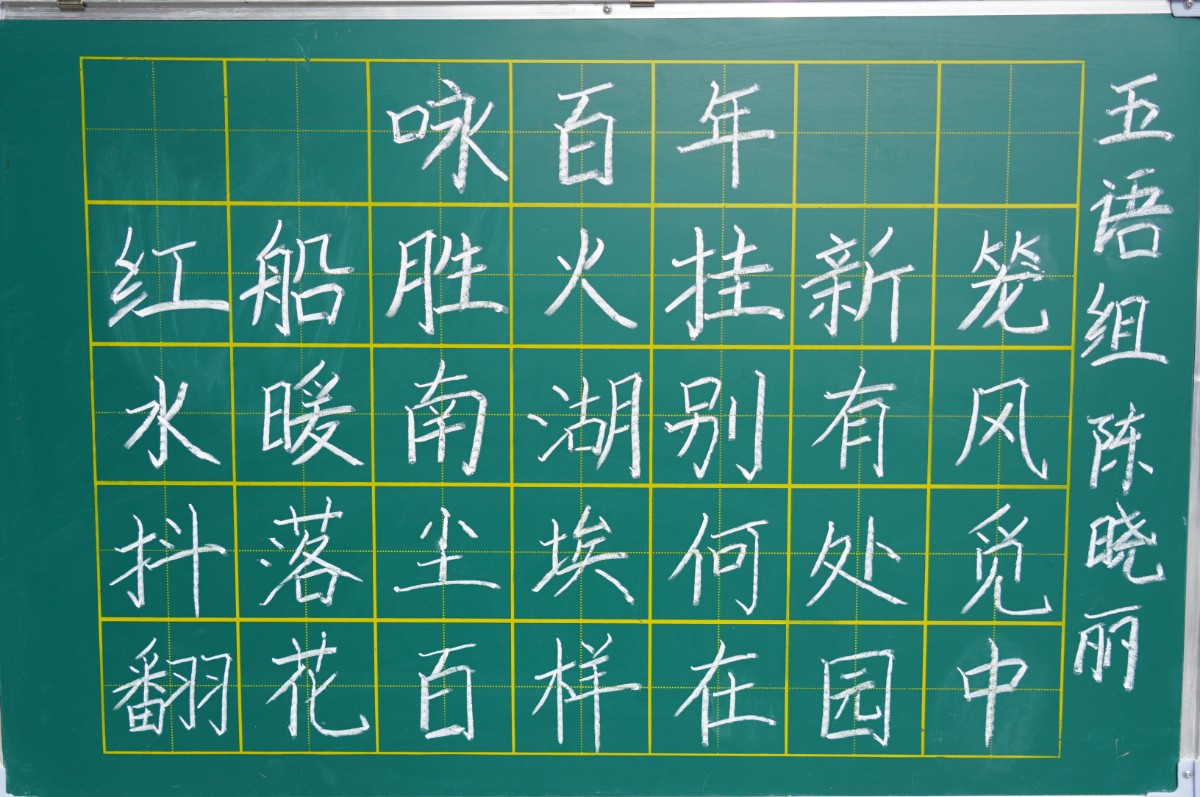 咏百年
红船胜火挂新笼
水暖南湖别有风
抖落尘埃何处觅
翻花百样在园中
五语组 陈晓丽